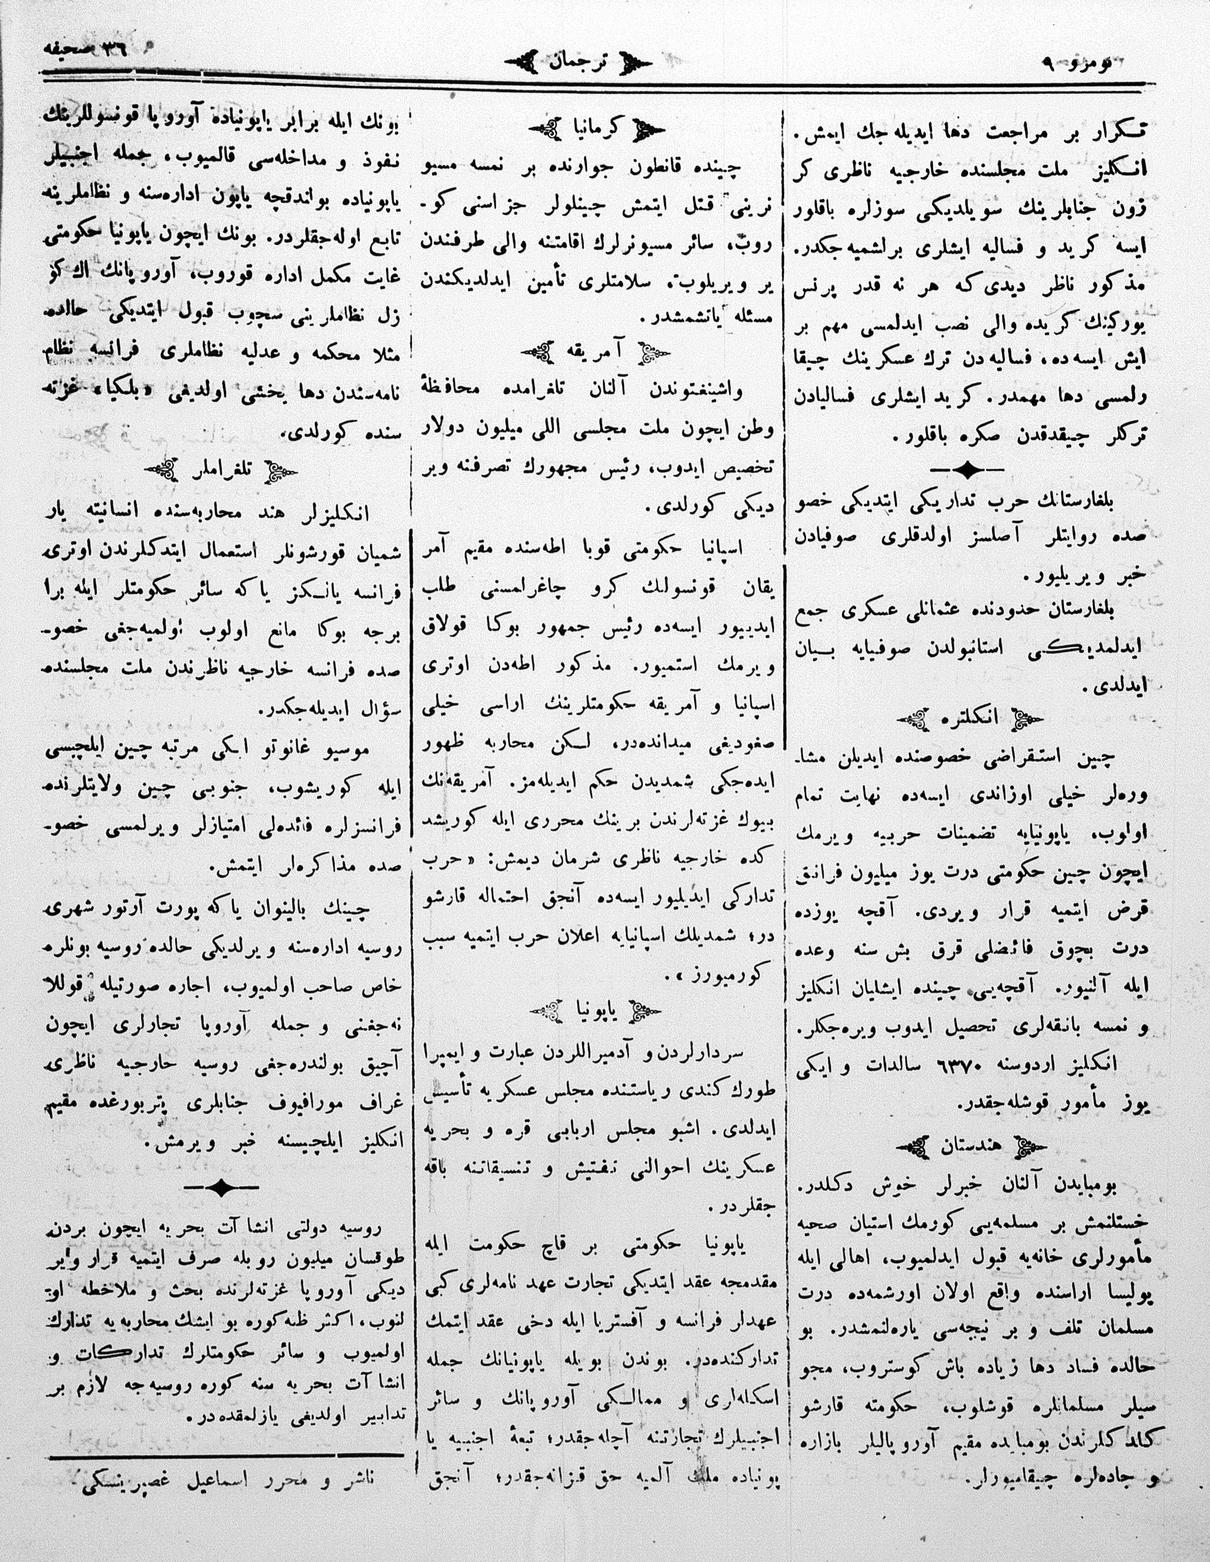 نومرو ٩
ترجمان
٣٦ صحيفه
تكرار بر مراجعت دها ايديله جك ايمش.
انكليز ملت مجلسنده خارجيه ناظرى كر
زون جنابلرينك سويلديكى سوزلره باقلور
ايسه كريد و فساليه ايشلرى برلشميه جكدر.
مذكور ناظر ديدى كه هر نه قدر پرنس
يوركينك كريده والى نصب ايدلمسى مهم بر
ايش ايسه ده، فساليه دن ترك عسكرينك چيقا
رلمسى دها مهمدر. كريد ايشلرى فساليادن
تركلر چيقدقدن صكره باقلور.
بلغارستانك حرب تداريكى ايتديكى خصو
صده روايتلر آصلسز اولدقلرى صوفيادن
خبر ويريليور.
بلغارستان حدودنده عثمانلى عسكرى جمع
ايدلمديكى استانبولدن صوفيايه بيان
ايدلدى.
انكلتره
چين استقراضى خصوصنده ايديلن مشا-
وره‌لر خيلى اوزاندى ايسه‌ده نهايت تمام
اولوب، ياپونيايه تضمينات حربيه ويرمك
ايچون چين حكومتى درت يوز ميليون فرانق
قرض ايتميه قرار ويردى. آقچه يوزده
درت بچوق فائضلى قرق بش سنه وعده
ايله آلنيور. آقچه‌يى چينده ايشليان انكليز
و نمسه بانقه‌لرى تحصيل ايدوب ويره‌جكلر.
انكليز اردوسنه ٦٣٧٠ سالدات و ايكى
يوز مأمور قوشله‌جقدر.
هندستان
بومبايدن آلنان خبرلر خوش دكلدر.
خستلنمش بر مسلمه‌يى كورمك استيان صحيه
مأمورلرى خانه‌يه قبول ايدلميوب، اهالى ايله
پوليسا اراسنده واقع اولان اورشمه‌ده درت
مسلمان تلف و بر نيجه‌سى ياره‌لنمشدر. بو
حالده فساد دها زياده باش كوستروب، مجو
سيلر مسلمانلره قوشلوب، حكومته قارشو
كلدكلرندن بومبايده مقيم آوروپاليلر بازاره
و جاده‌لره چيقاميورلر.
كرمانيا
چينده قانطون جوارنده بر نمسه مسيو
نرينى قتل ايتمش چينلولر جزاسنى كو-
روب، سائر مسيونرلرك اقامتنه والى طرفندن
ير ويريلوب، سلامتلرى تأمين ايدلديكندن
مسئله ياتشمشدر.
آمريقه
واشينغتوندن آلنان تلغرامده محافظهٔ
وطن ايچون ملت مجلسى اللى ميليون دولار
تخصيص ايدوب، رئيس مجهورك تصرفنه وير
ديكى كورلدى.
اسپانيا حكومتى قوبا اطه‌سنده مقيم آمر
يقان قونسولك كرو چاغرلمسنى طلب
ايديور ايسه‌ده رئيس جمهور بوكا قولاق
ويرمك استميور. مذكور اطه‌دن اوترى
اسپانيا و آمريقه حكومتلرينك اراسى خيلى
صغوديغى ميدانده‌در، لكن محاربه ظهور
ايده‌جكى شمديدن حكم ايديله‌مز. آمريقه‌نك
بيوك غزته‌لرندن برينك محررى ايله كوريشد
كده خارجيه ناظرى شرمان ديمش: «حرب
تداركى ايديليور ايسه‌ده آنجق احتماله قارشو
در؛ شمديلك اسپانيايه اعلان حرب ايتميه سبب
كورميورز».
ياپونيا
سردارلردن و آدميراللردن عبارت و ايمپرا
طورك كندى رياستنده مجلس عسكريه تأسيس
ايدلدى. اشبو مجلس اربابى قره و بحريه
عسكرينك احوالنى تفتيش و تنسيقاتنه باقه
جقلردر.
ياپونيا حكومتى بر قاچ حكومت ايله
مقدمجه عقد ايتديكى تجارت عهد نامه‌لرى كبى
عهدلر فرانسه و آفستريا ايله دخى عقد ايتمك
تداركنده‌در. بوندن بويله ياپونيانك جمله
اسكله‌لرى و ممالكى آوروپانك و سائر
اجنبيلرك تجارتنه آچله‌جقدر؛ تبعهٔ اجنبيه يا
پونياده ملك آلميه حق قزانه‌جقدر؛ آنجق
بونك ايله برابر ياپونياده آوروپا قونسوللرينك
نفوذ و مداخله‌سى قالميوب، جمله اجنبيلر
ياپونياده بولندقچه ياپون اداره‌سنه و نظاملرينه
تابع اوله‌جقلردر. بونك ايچون ياپونيا حكومتى
غايت مكمل اداره قوروب، آوروپانك اك كو
زل نظاملرينى سچوب قبول ايتديكى حالده
مثلا محكمه و عدليه نظاملرى فرانسه نظام
نامه‌سندن دها يخشى اولديغى «بلكيا» غزته
سنده كورلدى.
تلغراملر
انكليزلر هند محاربه‌سنده انسانيته يار
شميان قورشونلر استعمال ايتدكلرندن اوترى
فرانسه يالكز ياكه سائر حكومتلر ايله برا
برجه بوكا مانع اولوب اولميه‌جغى خصو-
صده فرانسه خارجيه ناظرندن ملت مجلسنده
سؤال ايديله‌جكدر.
موسيو غانوتو ايكى مرتبه چين ايلچيسى
ايله كوريشوب، جنوبى چين ولايتلرنده
فرانسزلره فائده‌لى امتيازلر ويرلمسى خصو-
صده مذاكره‌لر ايتمش.
چينك بالينوان ياكه پورت آرتور شهرى
روسيه اداره‌سنه ويرلديكى حالده روسيه بونلره
خاص صاحب اولميوب، اجاره صورتيله قوللا
نه‌جغنى و جمله آوروپا تجارلرى ايچون
آچيق بولندره‌جغى روسيه خارجيه ناظرى
غراف مورافيوف جنابلرى پتربورغده مقيم
انكليز ايلچيسنه خبر ويرمش.
روسيه دولتى انشاآت بحريه ايچون بردن
طوقسان ميليون روبله صرف ايتميه قرار وير
ديكى آوروپا غزته‌لرنده بحث و ملاخطه او-
لنوب، اكثر ظنه‌كوره بو ايشك محاربه‌يه تدارك
اولميوب و سائر حكومتلرك تداركات و
انشاآت بحريه سنه كوره روسيه‌جه لازم بر
تدابير اولديغى يازلمقده‌در.
ناشر و محرر اسماعيل غصپرينسكى